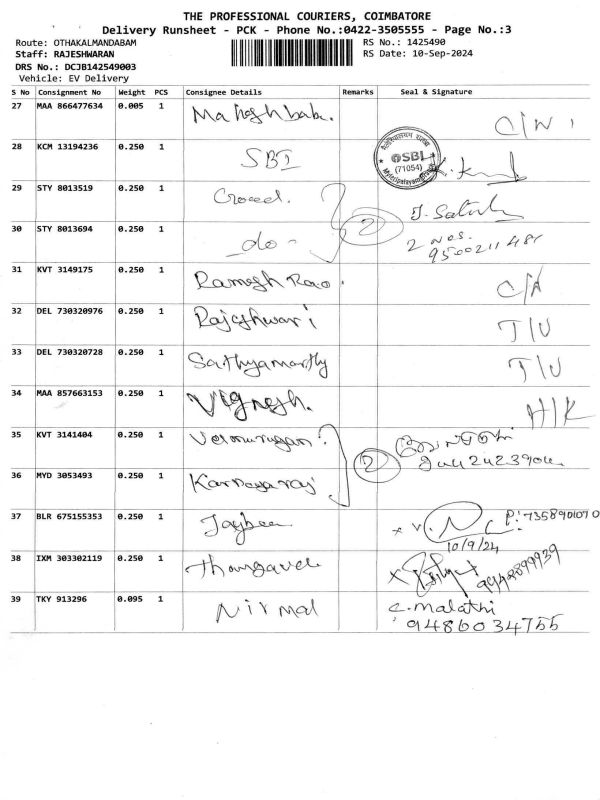 THE PROFESSIONAL COURIERS, COIMBATORE
Delivery Runsheet - PCK - Phone No.:0422-3505555 - Page No.:3
Route: OTHAKALMANDABAM RS No.: 1425490
Staff: RAJESHWARAN RS Date: 10-Sep-2024
DRS No.: DCJB142549003
Vehicle: EV Delivery
S No Consignment No Weight PCS Consignee Details Remarks Seal & Signature
27 MAA 866477634 0.005 1 Maheshbabu. C/N
28 KCM 13194236 0.250 1 SBI SBI (71054)
29 STY 8013519 0.250 1 J. Satish
30 STY 8013694 0.250 1 -do- 2 2 nos.
31 KVT 3149175 0.250 1 Ramesh Rao C/A
32 DEL 730320976 0.250 1 Rajeshwari T/U
33 DEL 730320728 0.250 1 Sathyamorthy T/U
34 MAA 857663153 0.250 1 Vignesh. H/K
35 KVT 3141404 0.250 1 Velmurugan 2
36 MYD 3053493 0.250 1 Karnagaraj
37 BLR 675155353 0.250 1 Jaybee P: 7358901070
10/9/24
38 IXM 303302119 0.250 1 Thangavel
39 TKY 913296 0.095 1 Nirmal C. Malathi
9486034755